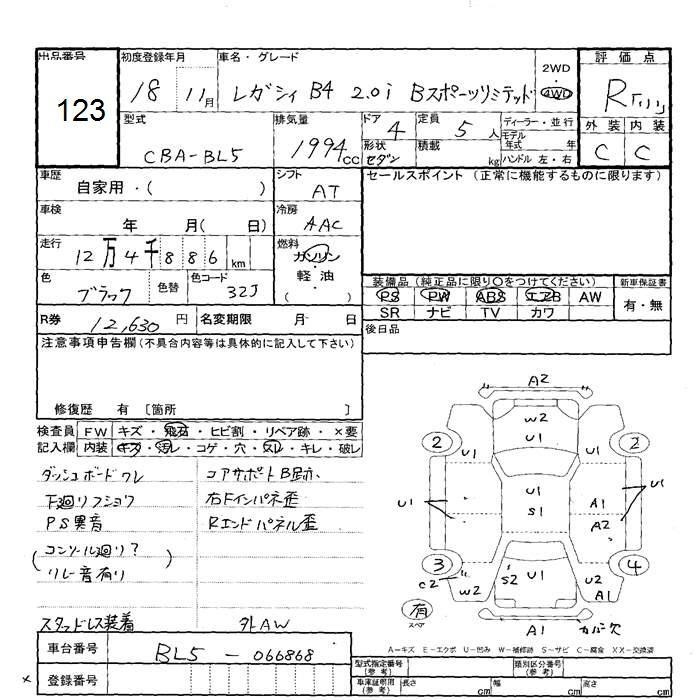 出品番号
123
初度登録年月
18 11月
車名・グレード
レガシィ B4 2.0i Bスポーツリミテッド
2WD
4WD
評価点
R
外装 内装
C C
型式
CBA-BL5
排気量
1994cc
ドア
4
形状
セダン
定員
5 人
積載
kg
ディーラー・並行
モデル
年式 年
ハンドル 左・右
車歴
自家用・( )
シフト
AT
セールスポイント (正常に機能するものに限ります)
車検
年 月( 日)
冷房
AAC
走行
12万4千886km
燃料
ガソリン
軽・油
( )
色
ブラック
色替
色コード
32J
装備品 (純正品に限り○をつけてください)
新車保証書
PS PW ABS エアB AW
有・無
SR ナビ TV カワ
R券
12,630円
名変期限 月 日
後日品
注意事項申告欄 (不具合内容等は具体的に記入して下さい)
修復歴 有 〔箇所 〕
検査員
記入欄
FW キズ・飛石・ヒビ割・リペア跡・×要
内装 キズ・汚レ・コゲ・穴・スレ・キレ・破レ
ダッシュボードワレ
下廻リフショウ
PS異音
(コンソール廻リ?
リレー音有リ)
スタッドレス装着
コアサポートB跡.
右Fインパネ歪
Rエンドパネル歪
外AW
A2
W2
U1
2 2
U1 U1
U1 U1 U1
S1
A1
A2
3 4
C2 W2 S2 U1 U2
A1
有
スペア
A1 カバー欠
A-キズ E-エクボ U-凹み W-補修跡 S-サビ C-腐食 XX-交換済
車台番号
BL5 - 066868
登録番号
×
型式指定番号
(参考)
類別区分番号
(参考)
車庫証明用
(参考)
長さ cm 幅 cm 高さ cm